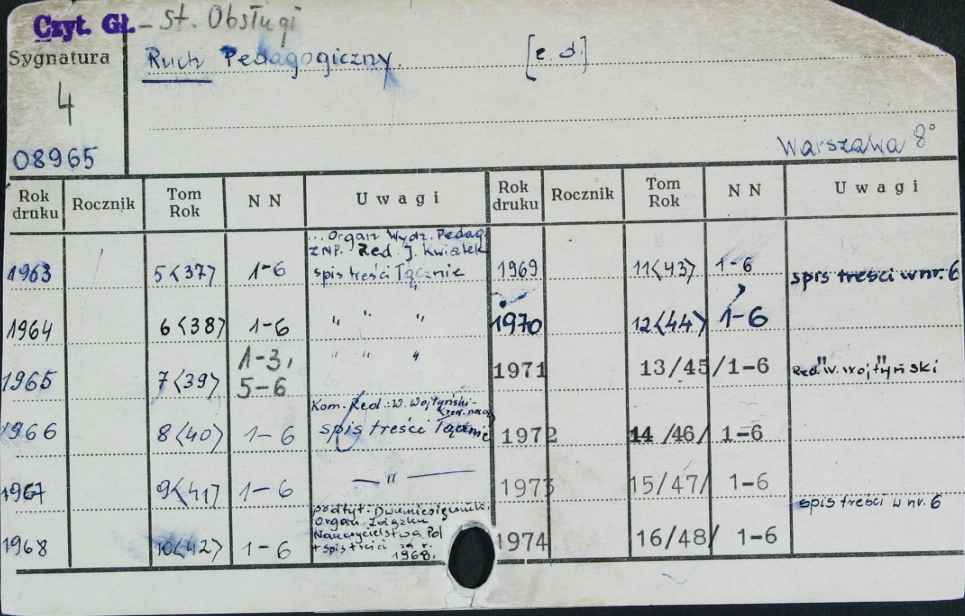 Czyt. Gł. - St. Obsługi
Sygnatura
4
08965
Ruch Pedagogiczny. [c. d.]
Warszawa 8°
Rok druku Rocznik Tom Rok N N Uwagi Rok druku Rocznik Tom Rok N N Uwagi
... Organ Wydz. Pedag.
ZNP. Red. J. Kwiatek
1963 5<37> 1-6 spis treści łącznie 1969 11<43> 1-6 spis treści w nr. 6
1964 6<38> 1-6 " " " 1970 12<44> 1-6
1965 7<39> 1-3, 5-6 " " " 1971 13/45/ 1-6 Red "W. Wojtyński"
Kom. Red.: W. Wojtyński-
1966 8<40> 1-6 spis treści łącznie 1972 14/46/ 1-6
1967 9<41> 1-6 — " — 1973 15/47/ 1-6
podtyt. Dwumiesięcznik.
Organ Związku
Nauczycielstwa Pol
spis treści w nr. 6
1968 10<42> 1-6 + spis treści za r. 1968. 1974 16/48/ 1-6